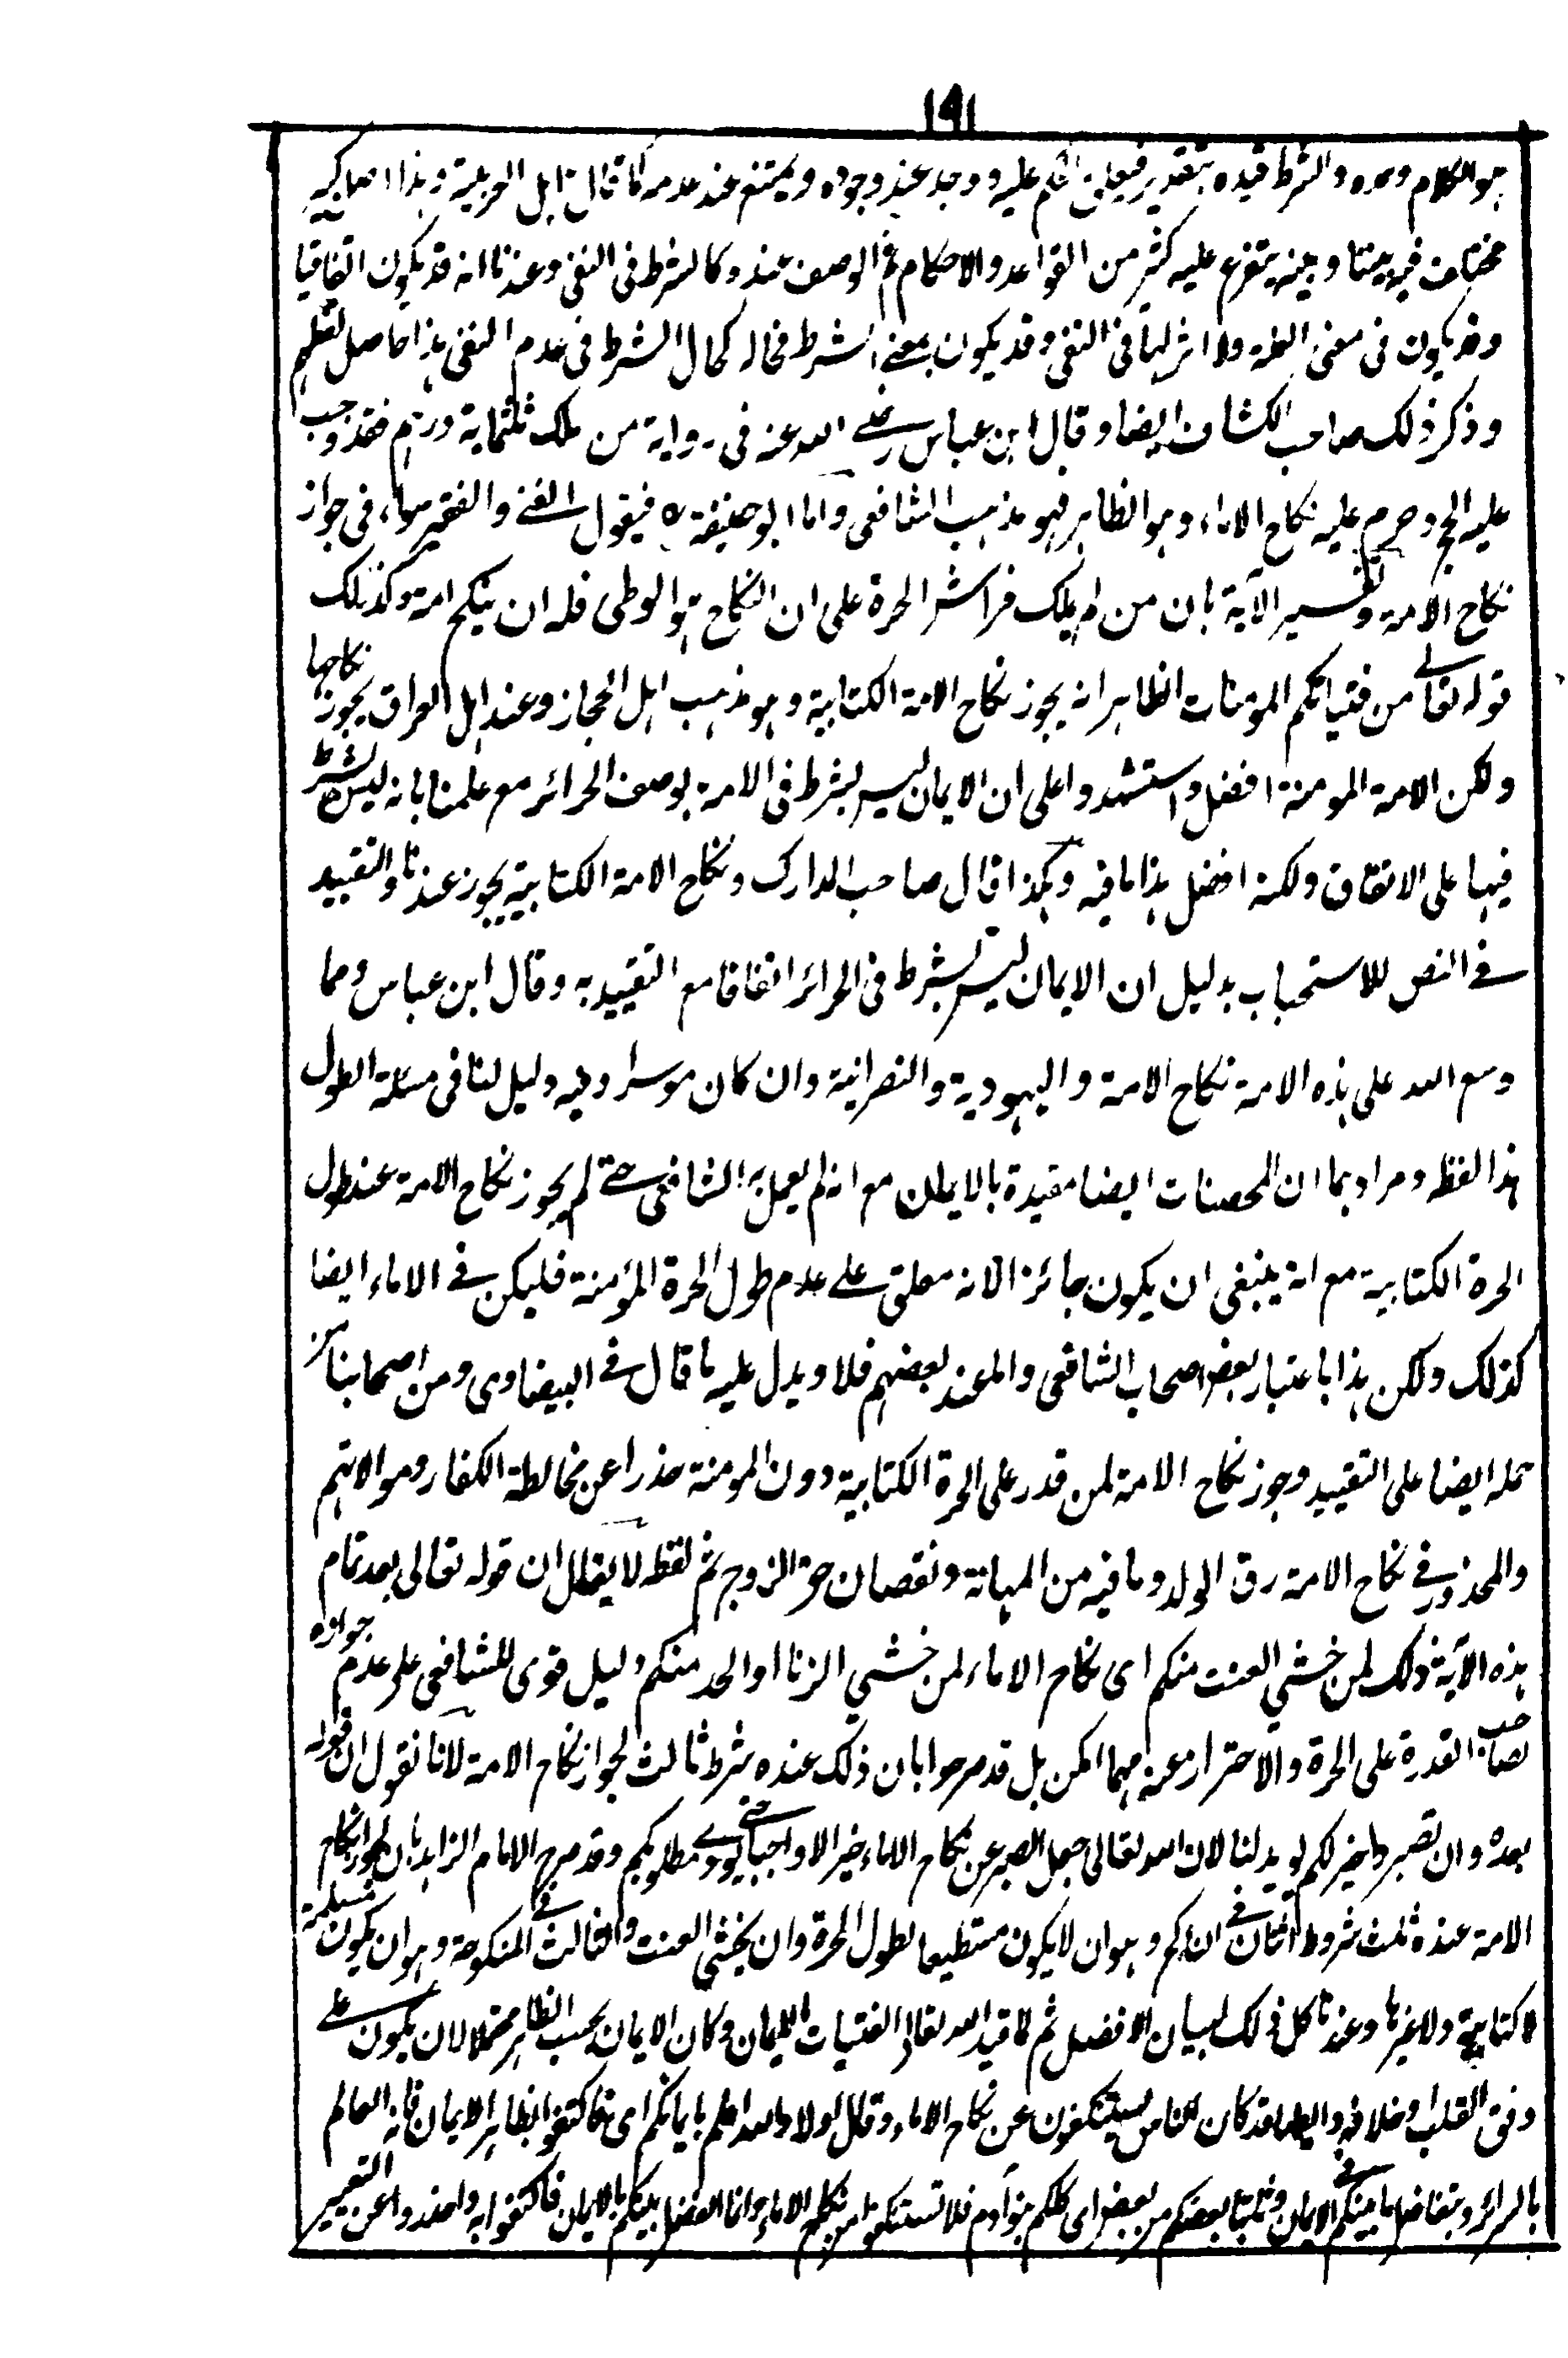 ١٩١
هو الكلام وحده والشرط قيده بتقدير فيعلق الحكم عليه ووجد عند وجوده ويمتنع عند عدمه كما قال اهل العربية وهذا اصل كبير
مختلف فيه بيننا وبينه يتفرع عليه كثير من القواعد والاحكام ثم الوصف عنده كالشرط فى النفى وعندنا انه قد يكون اتفاقيا
وقد يكون فى معنى العلة ولا اثر لها فى النفى وقد يكون بمعنى الشرط فحاله كحال الشرط فى عدم النفى هذا حاصل نقلهم
وذكر ذلك صاحب الكشاف ايضا وقال ابن عباس رضى الله عنه فى رواية من ملك ثلثماية درهم فقد وجب
عليه الحج وحرم عليه نكاح الاماء وهو الظاهر فهو مذهب الشافعى واما ابو حنيفة ره فيقول الغنى والفقير سواء فى جواز
نكاح الامة وتفسير الآية بان من لم يملك فراش الحرة على ان النكاح هو الوطى فله ان ينكح امة وكذلك
قوله تعالى من فتياتكم المومنات الظاهر انه يجوز نكاح الامة الكتابية وهو مذهب اهل الحجاز وعند اهل العراق يجوز نكاحها
ولكن الامة المومنة افضل واستشهدوا على ان الايمان ليس بشرط فى الامة بوصف الحرائر مع علمنا بانه ليس بشرط
فيها على الاتفاق ولكنه افضل هذا ما فيه وهكذا قال صاحب المدارك ونكاح الامة الكتابية يجوز عندنا والتقييد
فى النص للاستحباب بدليل ان الايمان ليس بشرط فى الحرائر اتفاقا مع التقييد به وقال ابن عباس ومما
وسع الله على هذه الامة نكاح الامة واليهودية والنصرانية وان كان موسرا وفيه دليل لنا فى مسئلة الطول
هذا لفظه ومراده بما ان المحصنات ايضا مقيدة بالايمان مع انه لم يعمل به الشافعى حتى لم يجوز نكاح الامة عند طول
الحرة الكتابية مع انه ينبغى ان يكون جائزا لانه معلق على عدم طول الحرة المؤمنة فليكن فى الاماء ايضا
كذلك ولكن هذا باعتبار بعض اصحاب الشافعى واما عند بعضهم فلا ويدل عليه ما قال فى البيضاوى ومن اصحابنا من
حمله ايضا على التقييد وجوز نكاح الامة لمن قدر على الحرة الكتابية دون المومنة حذرا عن مخالطة الكفار وموالاتهم
والمحذور فى نكاح الامة رق الولد وما فيه من المهانة ونقصان حق الزوج ثم لفظه لا يقال ان قوله تعالى بعد تمام
هذه الآية ذلك لمن خشى العنت منكم اى نكاح الاماء لمن خشى الزنا او الحد منكم دليل قوى للشافعى على عدم جوازه
لصاحب القدرة على الحرة والاحتراز عنه مهما امكن بل قد صرحوا بان ذلك عنده شرط ثالث لجواز نكاح الامة لانا نقول ان قوله
بعده وان تصبروا خير لكم يويد لنا لان الله تعالى جعل الصبر عن نكاح الاماء خيرا لا واجبا حتى يودى مطلوبكم وقد صرح الامام الزاهد بان لجواز نكاح
الامة عنده ثلث شروط اثنان فى الناكح وهو ان لا يكون مستطيعا لطول الحرة وان يخشى العنت والثالث فى المنكوحة وهو ان يكون مسلمة
لا كتابية ولا غيرها وعندنا كل ذلك لبيان الافضل ثم لما قيد الله تعالى الفتيات بالايمان وكان الايمان بحسب الظاهر محتملا لان يكون على
وفق القلب او خلافه وايضا قد كان الناس يستنكفون عن نكاح الاماء وقال اولا والله اعلم بايمانكم اى فاكتفوا بظاهر الايمان فانه العالم
بالسرائر وبتفاضل ما بينكم فى الايمان وثانيا بعضكم من بعض اى كلكم بنو آدم فلا تستنكفوا من نكاح الاماء وانما الفضل بينكم بالايمان فاكتفوا به واحذروا عن التعيير